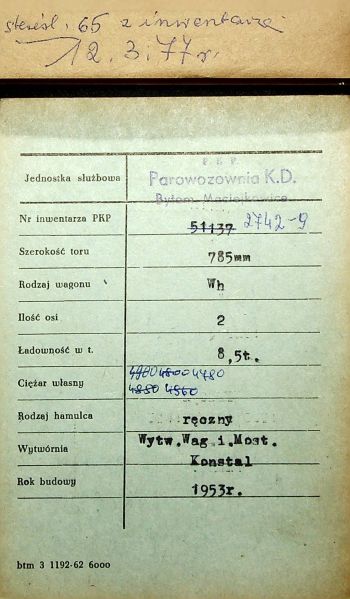 skreśl. 65 z inwentarza
12. 3. 77 r.
Jednostka służbowa P.K.P.
Parowozownia K.D.
Bytom Maciejkowice
Nr inwentarza PKP 51137 2742-9
Szerokość toru 785mm
Rodzaj wagonu Wh
Ilość osi 2
Ładowność w t. 8,5t.
Ciężar własny 4900 4800 4780
4850 4560
Rodzaj hamulca ręczny
Wytwórnia Wytw.Wag.i.Most.
Konstal
Rok budowy 1953r.
btm 3 1192-62 6000